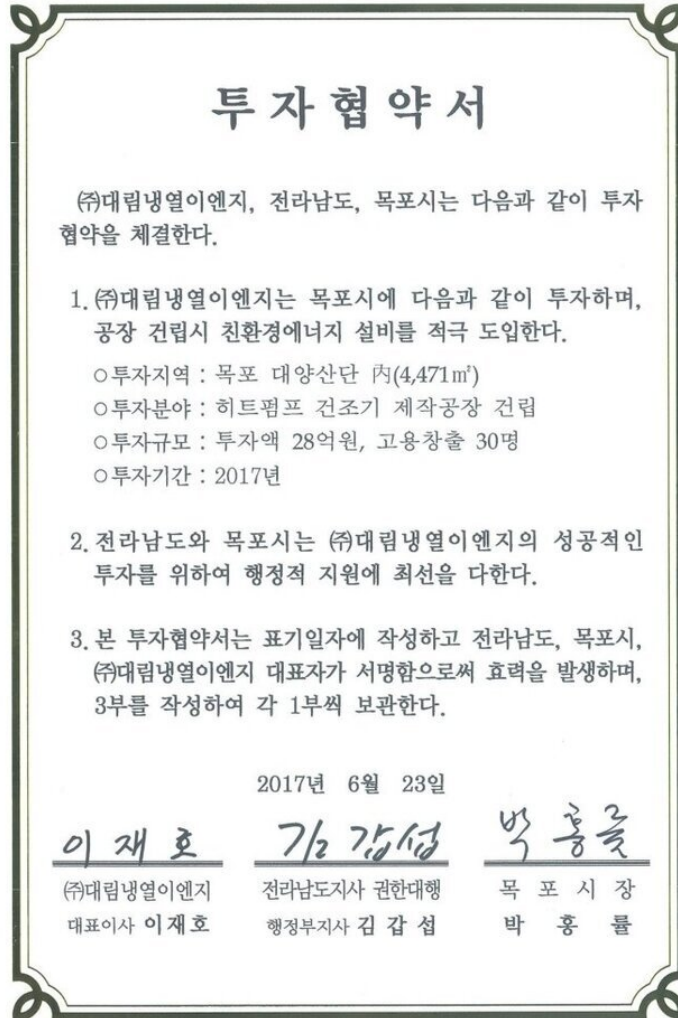 투자협약서
㈜대림냉열이엔지, 전라남도, 목포시는 다음과 같이 투자
협약을 체결한다.
1. ㈜대림냉열이엔지는 목포시에 다음과 같이 투자하며,
공장 건립시 친환경에너지 설비를 적극 도입한다.
○투자지역 : 목포 대양산단 內(4,471㎡)
○투자분야 : 히트펌프 건조기 제작공장 건립
○투자규모 : 투자액 28억원, 고용창출 30명
○투자기간 : 2017년
2. 전라남도와 목포시는 ㈜대림냉열이엔지의 성공적인
투자를 위하여 행정적 지원에 최선을 다한다.
3. 본 투자협약서는 표기일자에 작성하고 전라남도, 목포시,
㈜대림냉열이엔지 대표자가 서명함으로써 효력을 발생하며,
3부를 작성하여 각 1부씩 보관한다.
2017년 6월 23일
이재호 김갑섭 박홍률
㈜대림냉열이엔지 전라남도지사 권한대행 목 포 시 장
대표이사 이재호 행정부지사 김 갑 섭 박 홍 률